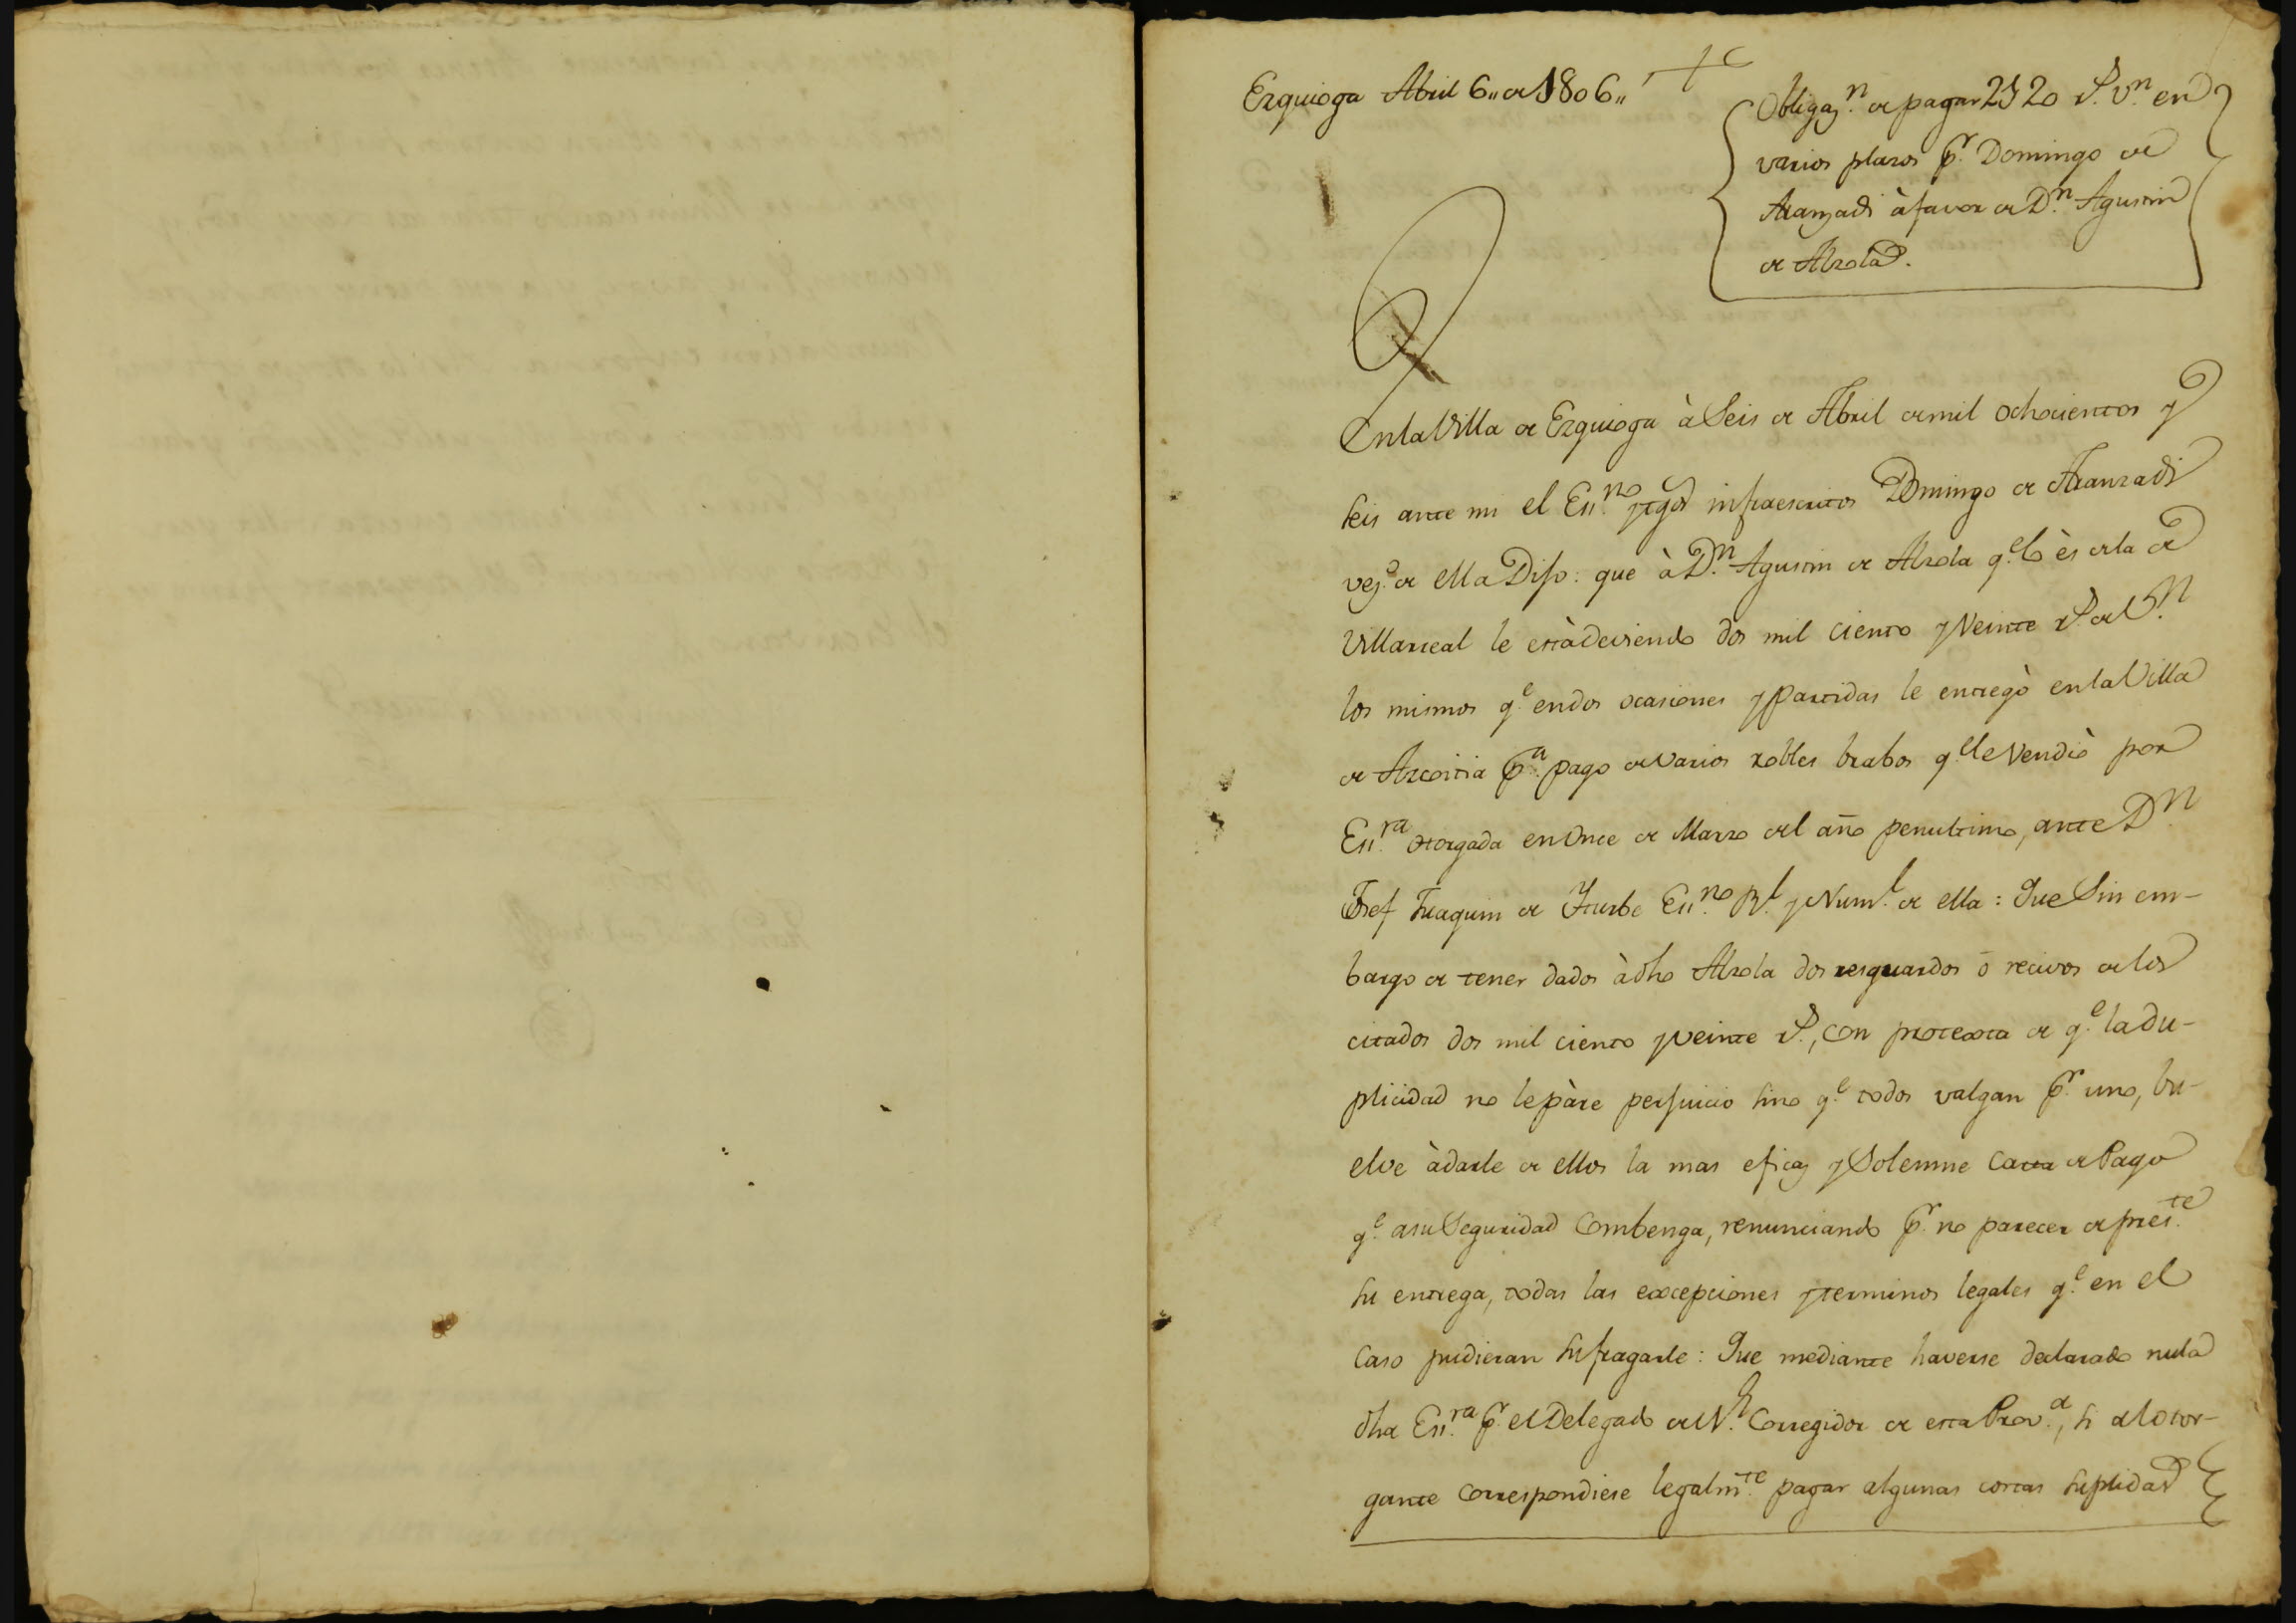 Ezquioga Abril 6,, de 1806,,
Obligaz.n de pagar 2120 r.s v.n en
varios plazos p.r Domingo de
Aranzadi à favor de D.n Agustin
de Alzola.
En la Villa de Ezquioga à Seis de Abril de mil ochocientos y
seis ante mi el Ess.no y tgos infraescritos Domingo de Aranzadi
vez.o de ella Dijo: que à D.n Agustin de Alzola q.e lo ès de la de
Villarreal le està deviendo dos mil ciento y Veinte r.s de V.n
los mismos q.e en dos ocasiones y Partidas le entregò en la Villa
de Azcoitia p.a pago de varios robles brabos q.e le Vendiò por
Ess.ra otorgada en Once de Marzo del año penultimo, ante D.n
Josef Juaquin de Yturbe Ess.no R.l y Num.l de ella: Que Sin em-
bargo de tener dados à dho Alzola dos resguardos ò recivos de los
citados dos mil ciento y veinte r.s, con protexta de q.e la du-
plicidad no le pàre perjuicio sino q.e todos valgan p.r uno, bu-
elve à darle de ellos la mas eficaz y Solemne Carta de Pago
q.e a su Seguridad Combenga, renunciando p.r no parecer de pres.te
su entrega, todas las excepciones y terminos legales q.e en el
Caso pudieran sufragarle: Que mediante haverse declarado nula
dha Ess.ra p.r el Delegado del S.r Corregidor de esta Prov.a, si al otor-
gante Correspondiese legalm.te pagar algunas costas suplidas